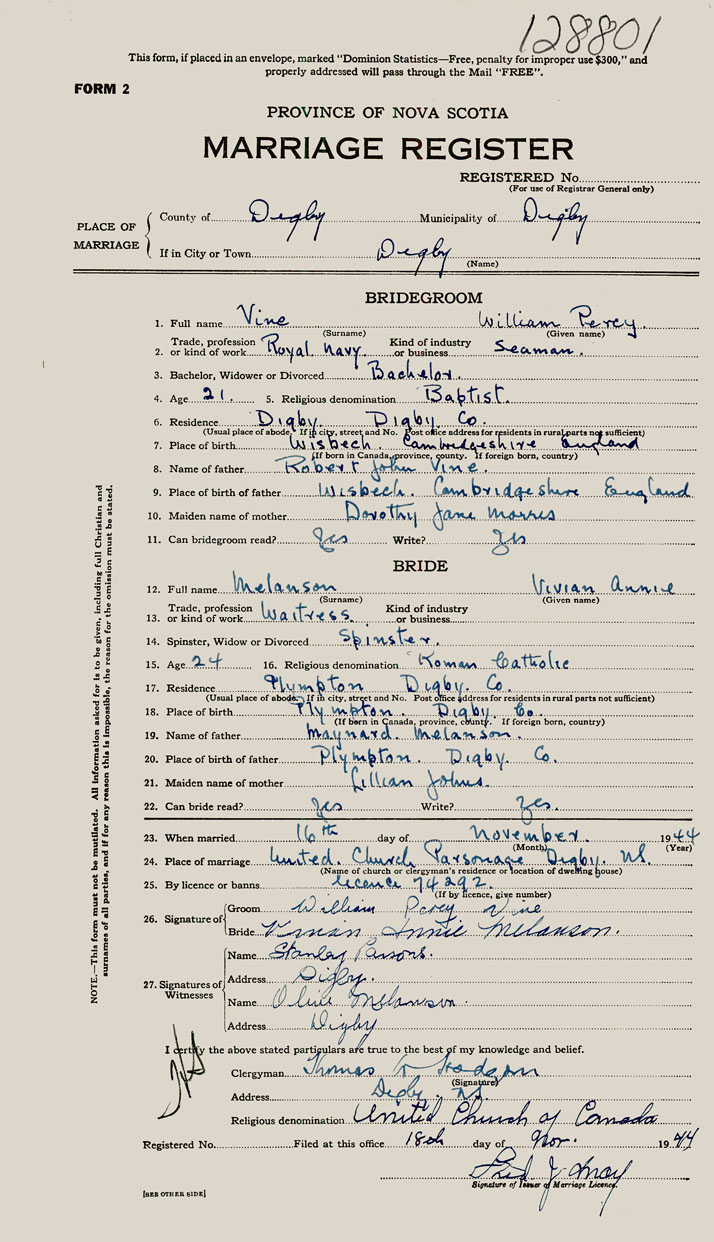 128801
This form, if placed in an envelope, marked "Dominion Statistics—Free, penalty for improper use $300," and
properly addressed will pass through the Mail "FREE".
FORM 2
PROVINCE OF NOVA SCOTIA
MARRIAGE REGISTER
REGISTERED No.
(For use of Registrar General only)
PLACE OF MARRIAGE
County of Digby Municipality of Digby
If in City or Town Digby
(Name)
BRIDEGROOM
1. Full name Vine William Percy.
(Surname) (Given name)
2. Trade, profession or kind of work Royal Navy. Kind of industry or business Seaman.
3. Bachelor, Widower or Divorced Bachelor.
4. Age 21. 5. Religious denomination Baptist.
6. Residence Digby. Digby Co.
(Usual place of abode. If in city, street and No. Post office address for residents in rural parts not sufficient)
7. Place of birth Wisbech. Cambridgeshire England
(If born in Canada, province, county. If foreign born, country)
8. Name of father Robert John Vine.
9. Place of birth of father Wisbech. Cambridgeshire England
10. Maiden name of mother Dorothy Jane Morris
11. Can bridegroom read? Yes Write? Yes
BRIDE
12. Full name Melanson Vivian Annie
(Surname) (Given name)
13. Trade, profession or kind of work Waitress. Kind of industry or business
14. Spinster, Widow or Divorced Spinster.
15. Age 24 16. Religious denomination Roman Catholic
17. Residence Plympton Digby. Co.
(Usual place of abode. If in city, street and No. Post office address for residents in rural parts not sufficient)
18. Place of birth Plympton. Digby Co.
(If born in Canada, province, county. If foreign born, country)
19. Name of father Maynard Melanson.
20. Place of birth of father Plympton. Digby. Co.
21. Maiden name of mother Lillian Johns.
22. Can bride read? Yes Write? Yes.
23. When married 16th day of November. 1944
(Month) (Year)
24. Place of marriage United. Church Parsonage Digby. N.S.
(Name of church or clergyman's residence or location of dwelling house)
25. By licence or banns licence 74292.
(If by licence, give number)
26. Signature of
Groom William Percy Vine
Bride Vivian Annie Melanson.
27. Signatures of Witnesses
Name Stanley Parsons.
Address Digby.
Name Olive Melanson.
Address Digby
I certify the above stated particulars are true to the best of my knowledge and belief.
Clergyman Thomas W Hodgson
(Signature)
Address Digby. N.S.
Religious denomination United Church of Canada
Registered No. Filed at this office 18th day of Nov. 1944
Fred J.
Signature of Issuer of Marriage Licence.
[SEE OTHER SIDE]
NOTE.—This form must not be mutilated. All information asked for is to be given, including full Christian and
surnames of all parties, and if for any reason this is impossible, the reason for the omission must be stated.